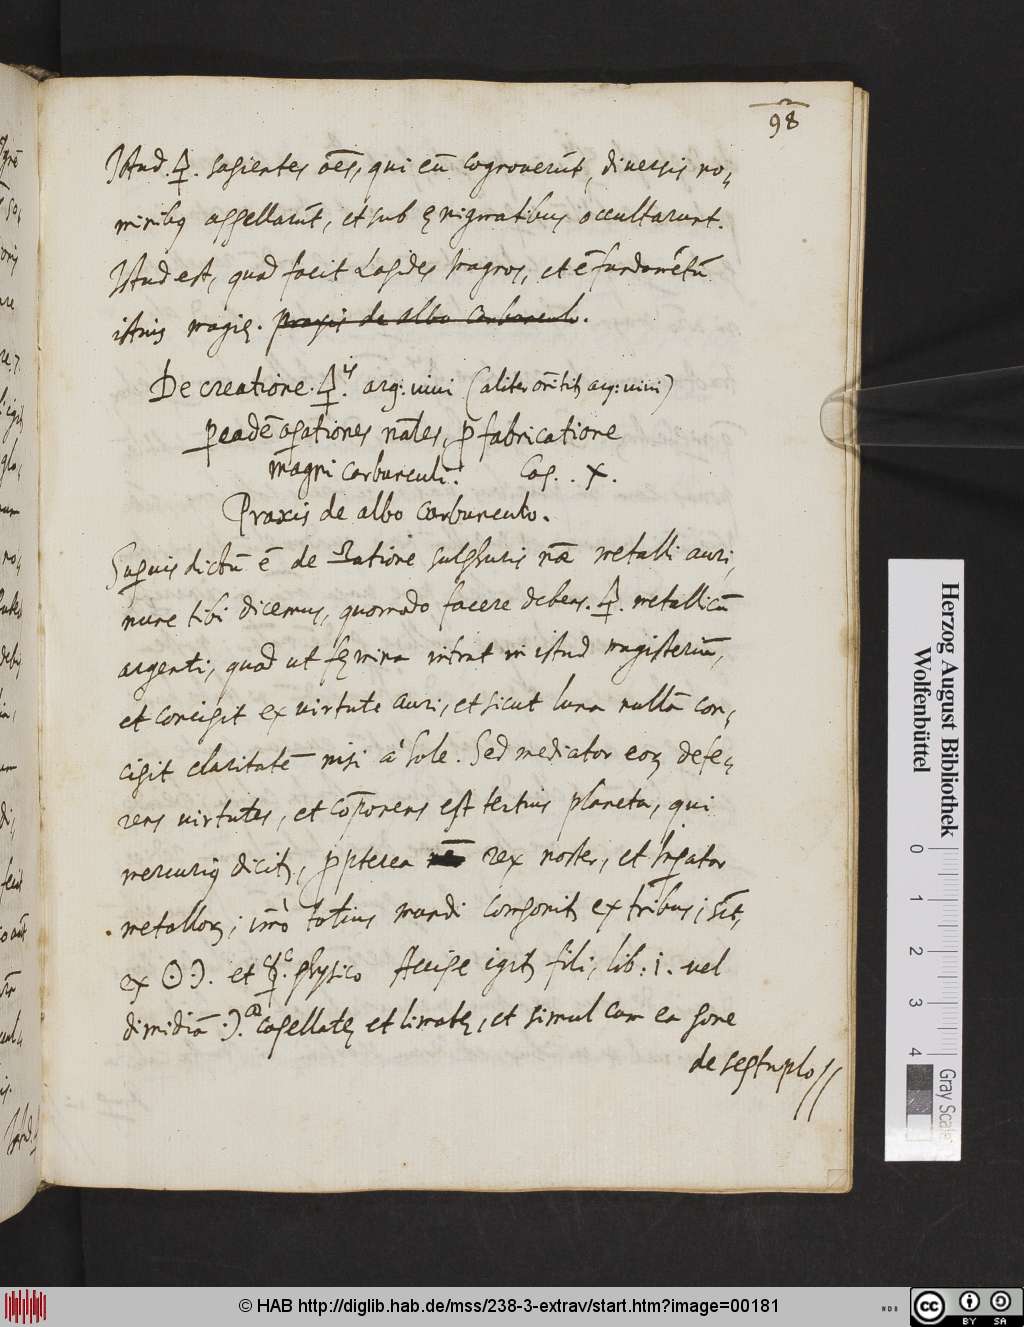 98
Istud 🜍 sapientes oēs, qui eū cognoverūt, diversis no„
minibꝗ appellarūt, et sub ęnigmatibus occultarunt.
Istud est, quod facit Lapides magnos, et ē fundamētū
istius magię. Praxis de albo Carbunculo.
De creatione 🜍 arg: vivi (aliter arg: vivi)
operationes nāles, ꝓ fabricatione
magni carbunculi. Cap. X.
Praxis de albo carbunculo.
Superius dictū ē de ratione sulphuris metalli auri,
nunc tibi dicemus, quomodo facere debeas 🜍 metallicū
argenti, quod ut fęmina intrat in istud magisteriū,
et concipit ex virtute auri, et sicut luna nullā con„
cipit claritatē nisi à Sole. Sed mediator eoꝝ defe„
rens virtutes, et cōponens est tertius planeta, qui
mercuriꝗ dicit, ꝓpterea rex noster, et
metalloꝝ, imò totius mundi componit ex tribus, scit,
ex ☉ ☽. et ☿ physico Accipe igit fili, lib: i. vel
dimidiā ☽. capellatę et limatę, et simul cum ea pone
de septuplo//
Herzog August Bibliothek
Wolfenbüttel
0 1 2 3 4 Gray Scale
© HAB http://diglib.hab.de/mss/238-3-extrav/start.htm?image=00181
cc BY SA